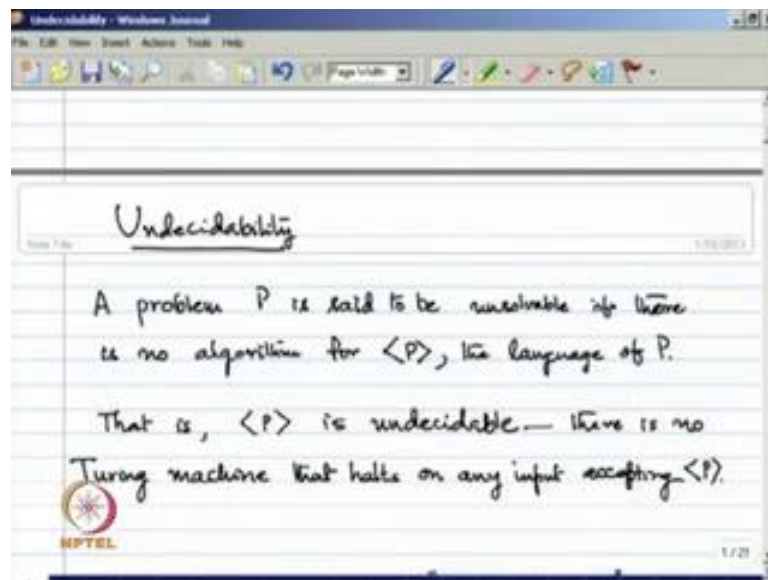 Undecidability - Windows Journal
File Edit View Insert Actions Tools Help
Page Width
Undecidability
Note Title
A problem P is said to be unsolvable if there
is no algorithm for <P>, the language of P.
That is, <P> is undecidable — there is no
Turing machine that halts on any input accepting <P>.
NPTEL
1/21